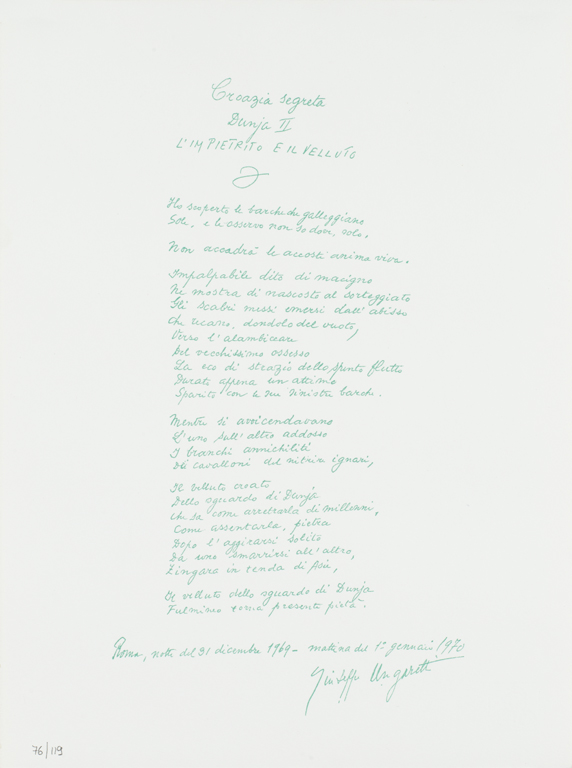 Croazia segreta
Dunja II
L'IMPIETRITO E IL VELLUTO
Ho scoperto le barche che galleggiano
Sole, e le osservo non so dove, solo.
Non accadrà le accosti anima viva.
Impalpabile dito di macigno
Ne mostra di nascosto al sorteggiato
Gli scabri messi emersi dall'abisso
Che recano, dondolo del vuoto,
Verso l'alambiccare
Del vecchissimo ossesso
La eco di strazio dello spento flutto
Durato appena un attimo
Sparito con le sue sinistre barche.
Mentre si avvicendavano
L'uno sull'altro addosso
I branchi annichiliti
Dei cavalloni del nitrire ignari,
Il velluto croato
Dello sguardo di Dunja
Che sa come arretrarla di millenni,
Come assentarla, pietra
Dopo l'aggirarsi solito
Da uno smarrirsi all'altro,
Zingara in tenda di Asia,
Il velluto dello sguardo di Dunja
Fulmineo torna presente pietà.
Roma, notte del 31 dicembre 1969 - mattina del 1° gennaio 1970
Giuseppe Ungaretti
76/119